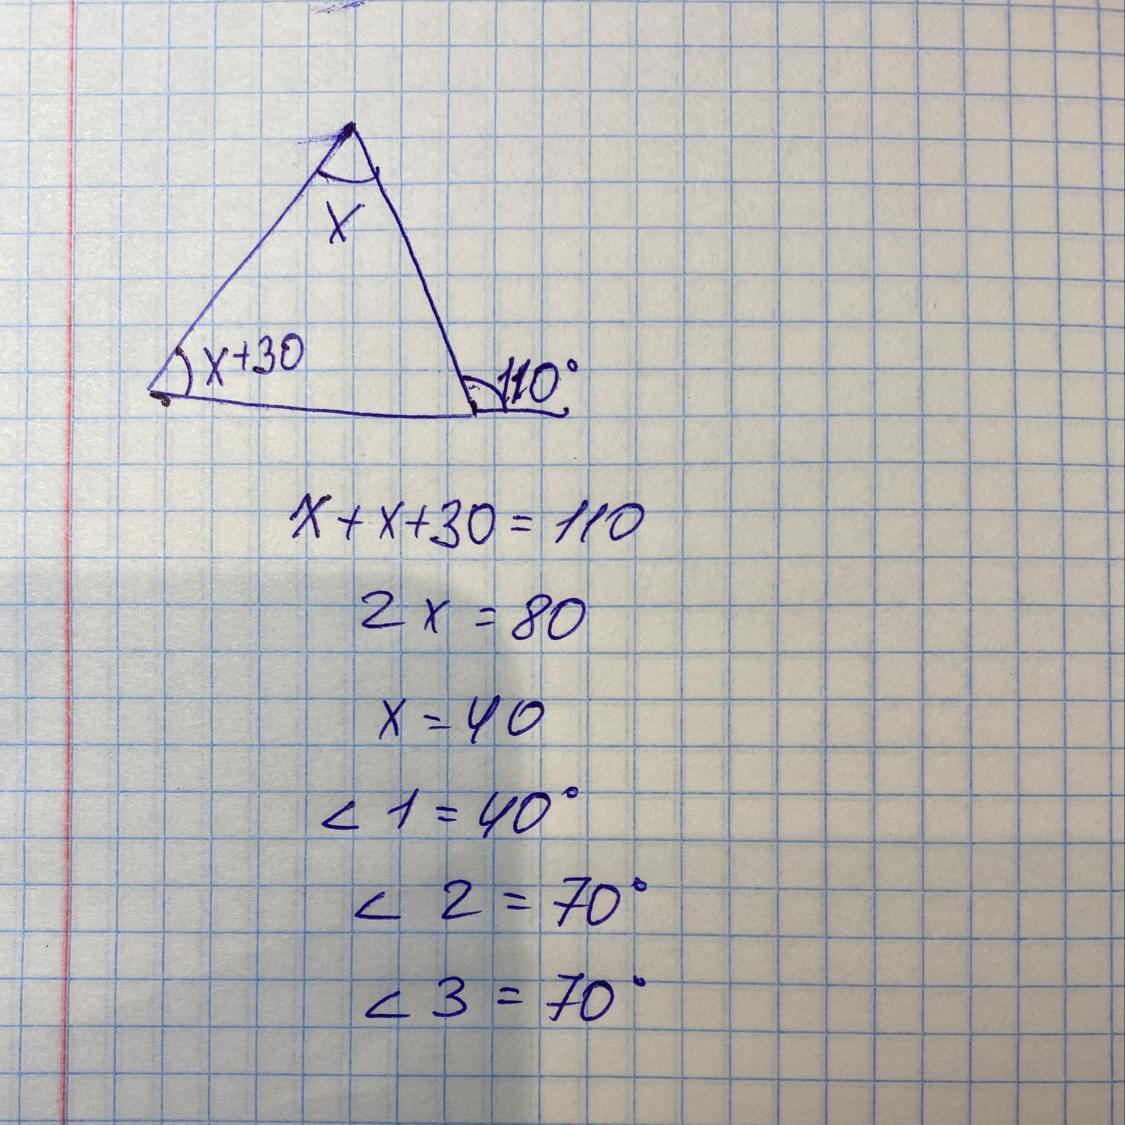 x
x+30
110°
x+x+30=110
2x=80
x=40
∠1=40°
∠2=70°
∠3=70°